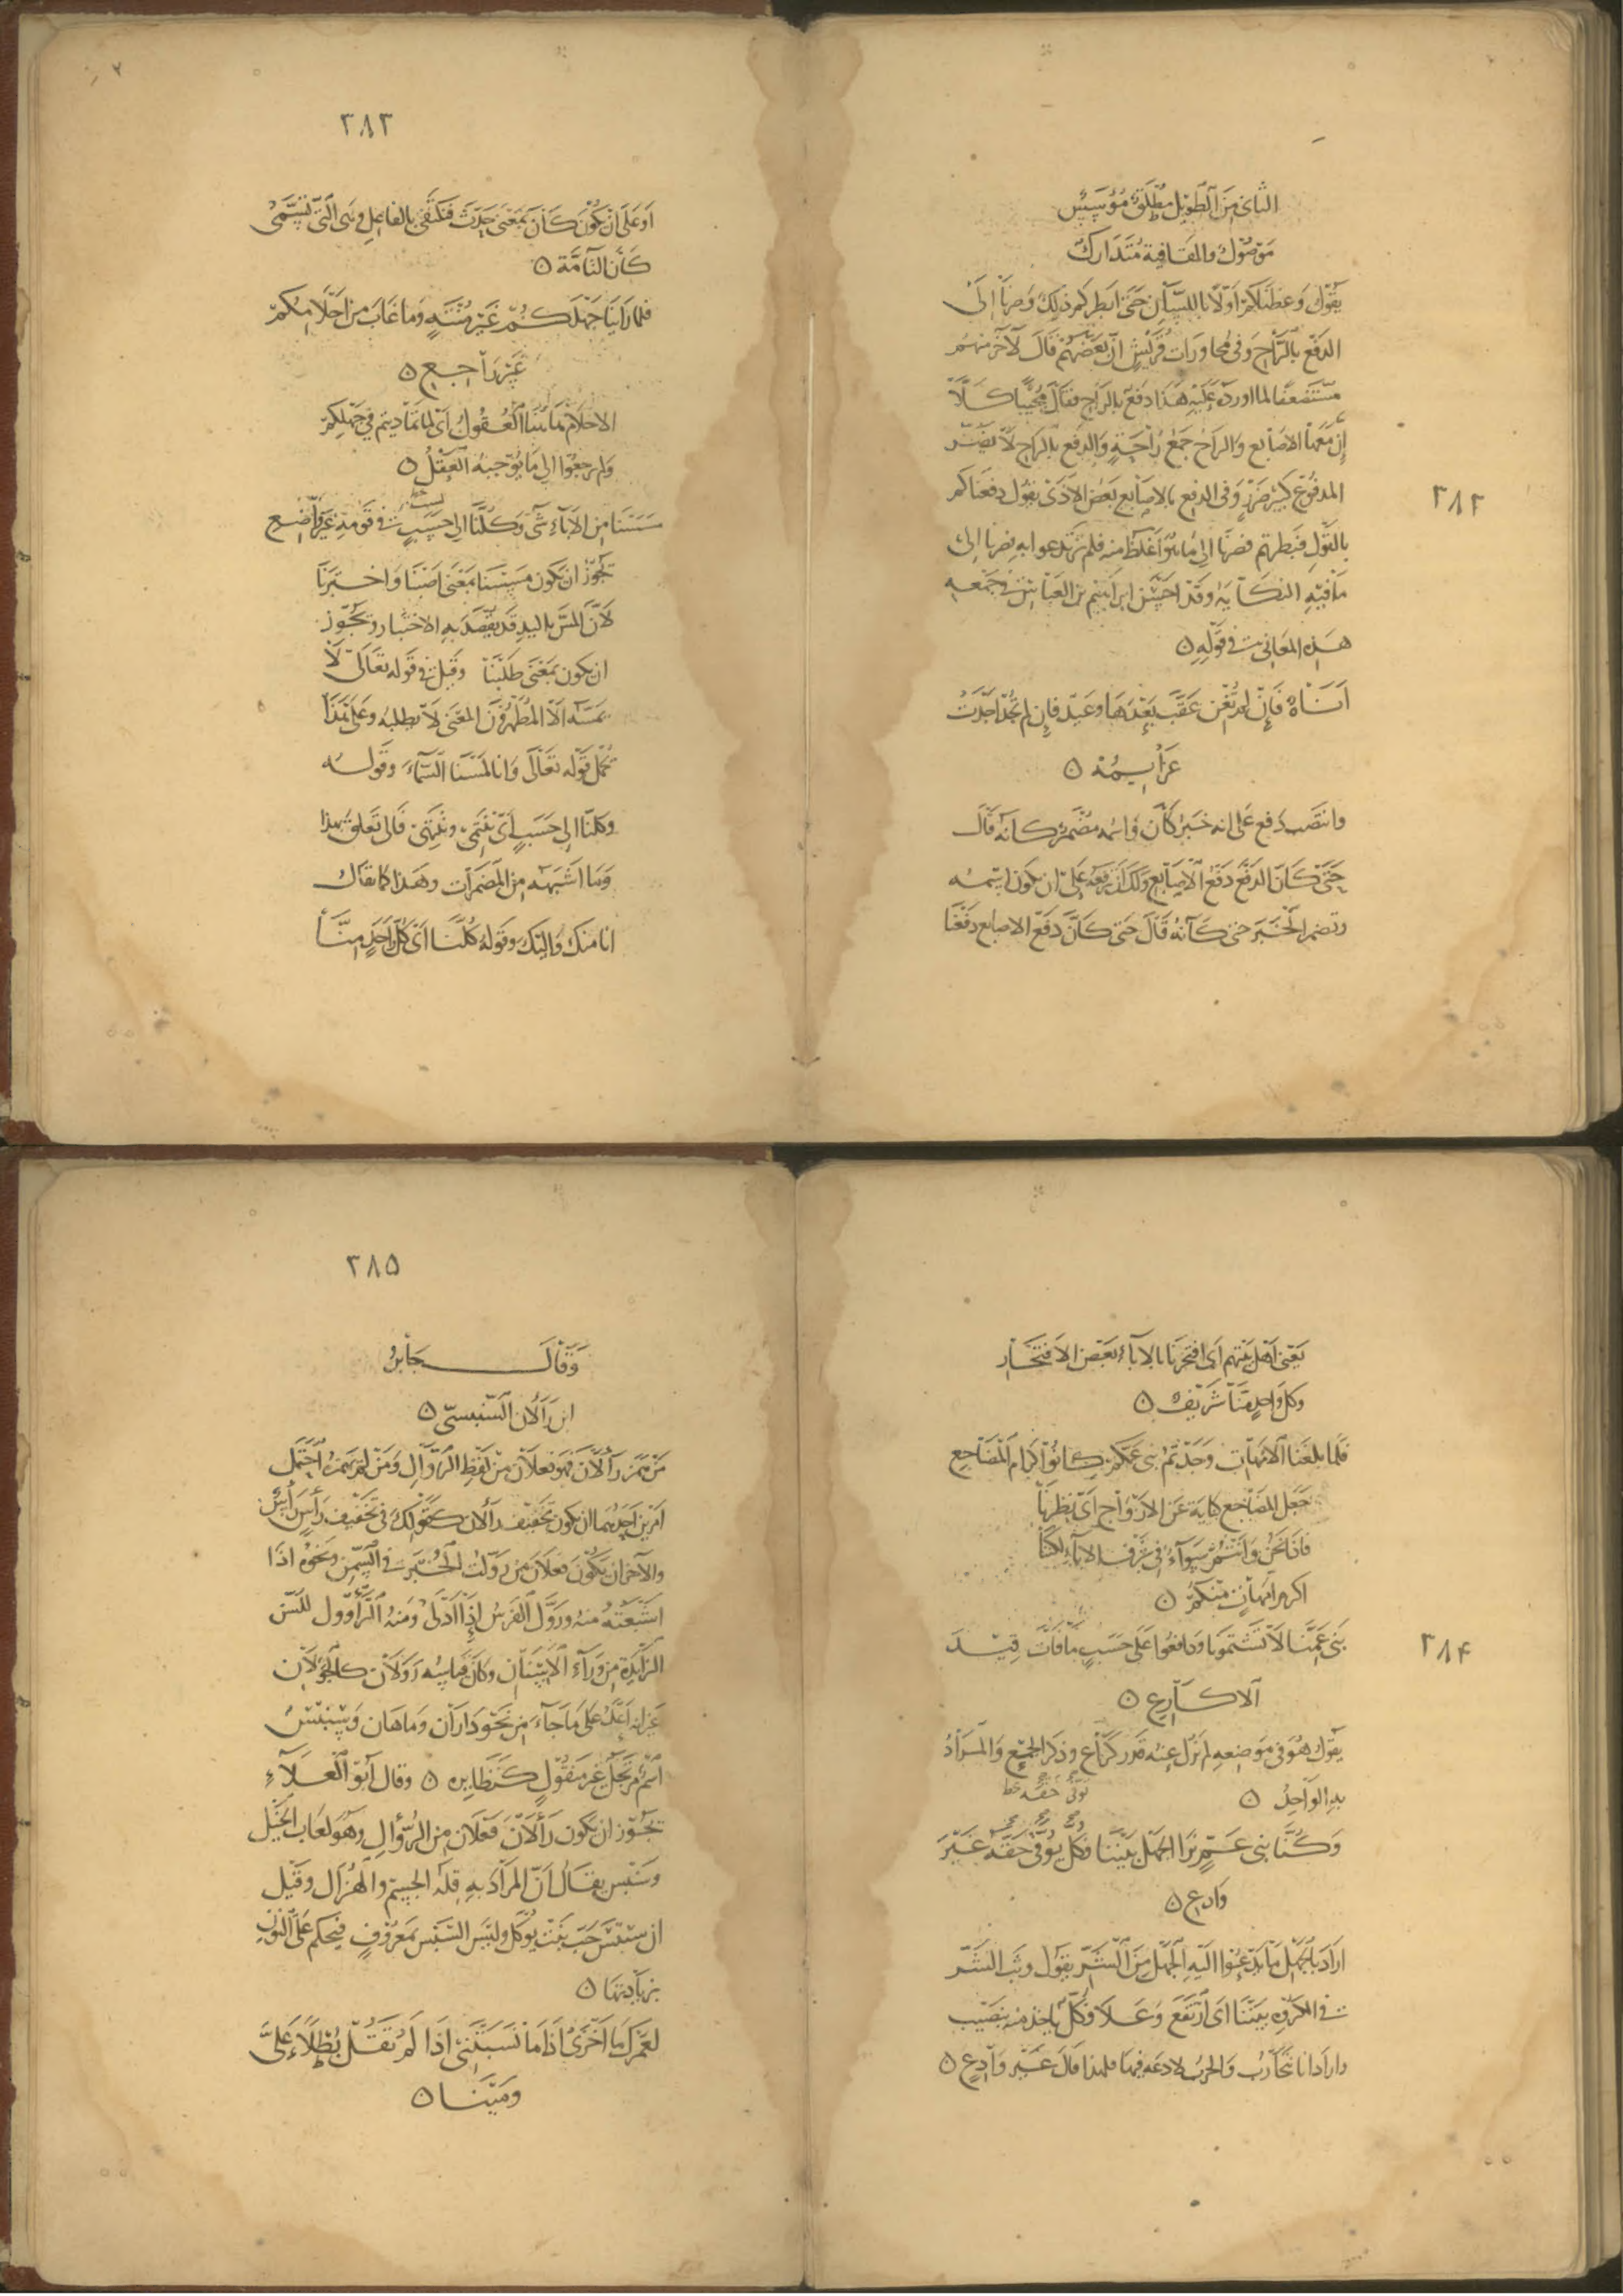 الثاني من الطويل مطلق مؤسس
موصول والقافية متدارك
يقول وعظناكم اولا باللسان حتى ابطركم ذلك وصرنا الى
الدفع بالراح وفي محاورات قريش ان بعضهم قال لآخر منهم
مستضعفا لما اورده عليه هذا دفع بالراح فقال مجيبا كلا
ان معها الاصابع والراح جمع راحة والدفع بالراح لا يضر
المدفوع كبير ضرر وفي الدفع بالاصابع بعض الاذى يقول دفعناكم
٣٨٢
بالقول فبطرتم فصرنا الى ما هو اغلظ منه فلم ترتدعوا به فصرنا الى
ما فيه النكاية وقد احسن ابرهيم بن العباس في جمعه
هذه المعاني في قوله ه
اناة فان لم تغن عقب بعدها وعيد فان لم تجد اجدت
عزايمه ه
وانتصب دفع على انه خبر كان واسمه مضمر كانه قال
حتى كان الدفع دفع الاصابع ولك ان ترفعه على ان يكون اسمه
وتضمر الخبر حتى كانه قال حتى كان دفع الاصابع دفعنا
٣٨٣
او على ان يكون كان بمعنى حدث فتكتفي بالفاعل وهي التي تسمى
كان التامة ه
فلما راينا جهلكم غير منته وما غاب من احلامكم
غير راجع ه
الاحلام هاهنا العقول اي لما تماديتم في جهلكم
ولم ترجعوا الى ما يوجبه العقل ه
مسسنا من الاباء شيئا وكلنا الى حسب في قومه غير واضع
يجوز ان يكون مسسنا بمعنى اصبنا واختبرنا
لان المس باليد قد يقصد به الاختبار ويجوز
ان يكون بمعنى طلبنا وقيل في قوله تعالى لا
يمسه الا المطهرون المعنى لا يطلبه وعلى هذا
يحمل قوله تعالى وانا لمسنا السماء وقوله
وكلنا الى حسب اي ننتمي وننتهي فالى تعلق بهذا
وما اشبهه من المضمرات وهذا كما يقال
انا منك واليك وقوله كلنا اي كل واحد منا
يعني اهل بيتهم اي افتخرنا بالاباء بعض الافتخار
وكل واحد منا شريف ه
فلما بلغنا الامهات وجدتم بني عمكم كانوا كرام المضاجع
جعل المضاجع كناية عن الازواج اي نظرنا
فاذا نحن وانتم سواء في شرف الاباء لكنا
اكرم امهات منكم ه
بني عمنا لا تشتمونا ودافعوا على حسب ما فات قيد
٣٨٤
الاكارع ه
يقول هو في موضعه لم نزل عنه قدر كراع وذكر الجمع والمراد
به الواحد ه
يوفى حقه خط
وكنا بني عم نزا الجهل بيننا فكل يوفى حقه غير
وادع ه
اراد بالجهل ما يدعوا اليه الجهل من الشر يقول وثب الشر
في المكروه بيننا اي ارتفع وعلا فكل ياخذ منه بنصيب
واراد انا نتحارب والحرب لا دعة فيها فلهذا قال غير وادع ه
٣٨٥
وقال جابر
ابن رالان السنبسي ه
من همز رألان فهو فعلان من لفظ الرؤال ومن لم يهمز احتمل
امرين احدهما ان يكون تخفيف رألان كقولك في تخفيف رأس راس
والآخر ان يكون فعلان من رولت الخبز في السمن ونحوه اذا
اشبعته منه وروّل الفرس اذا ادلى ومنه الراوول للسن
الزايدة من وراء الاسنان وكان قياسه رولان كالجولان
غير انه اعل على ما جاء من نحو داران وماهان وسنبس
اسم مرتجل غير منقول كنظايره ه وقال ابو العلاء
يجوز ان يكون رألان فعلان من الرؤال وهو لعاب الخيل
وسنبس يقال ان المراد به قلة الجسم والهزال وقيل
ان سنبس حب نبت يؤكل وليس السبس بمعروف فيحكم على النون
بزيادتها ه
لعمرك ما اخزى اذا ما نسبتني اذا لم تقل بطلا علي
ومينا ه